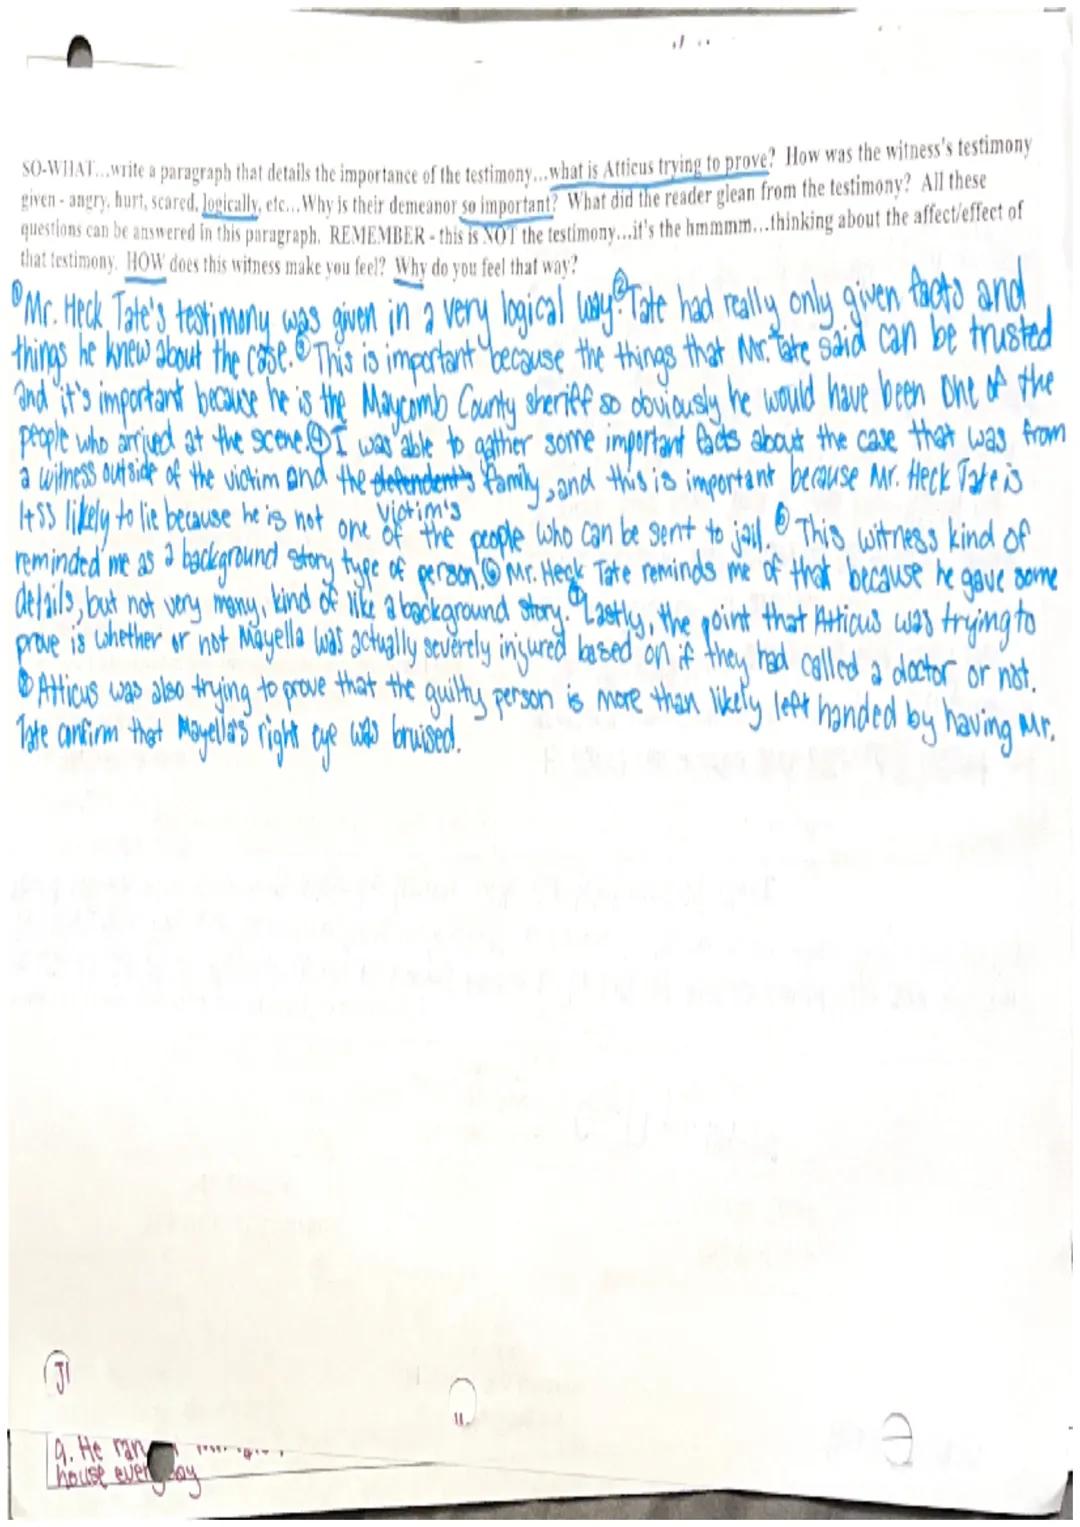 SO-WHAT...write a paragraph that details the importance of the testimony...what is Atticus trying to prove? How was the witness's testimony
given - angry, hurt, scared, logically, etc...Why is their demeanor so important? What did the reader glean from the testimony? All these
questions can be answered in this paragraph. REMEMBER - this is NOT the testimony...it's the hmmmm...thinking about the affect/effect of
that testimony. HOW does this witness make you feel? Why do you feel that way?
① Mr. Heck Tate's testimony was given in a very logical way. ② Tate had really only given facts and
things he knew about the case. ③ This is important because the things that Mr. Tate said can be trusted
and it's important because he is the Maycomb County sheriff so obviously he would have been one of the
people who arrived at the scene. ④ I was able to gather some important facts about the case that was from
a witness outside of the victim and the defendent's family, and this is important because Mr. Heck Tate is
victim's
less likely to lie because he is not one of the people who can be sent to jail. ⑤ This witness kind of
reminded me as a background story type of person. ⑥ Mr. Heck Tate reminds me of that because he gave some
details, but not very many, kind of like a background story. ⑦ Lastly, the point that Atticus was trying to
prove is whether or not Mayella was actually severely injured based on if they had called a doctor or not.
⑧ Atticus was also trying to prove that the guilty person is more than likely left handed by having Mr.
Tate confirm that Mayella's right eye was bruised.
JI
9. He ran
house everyday